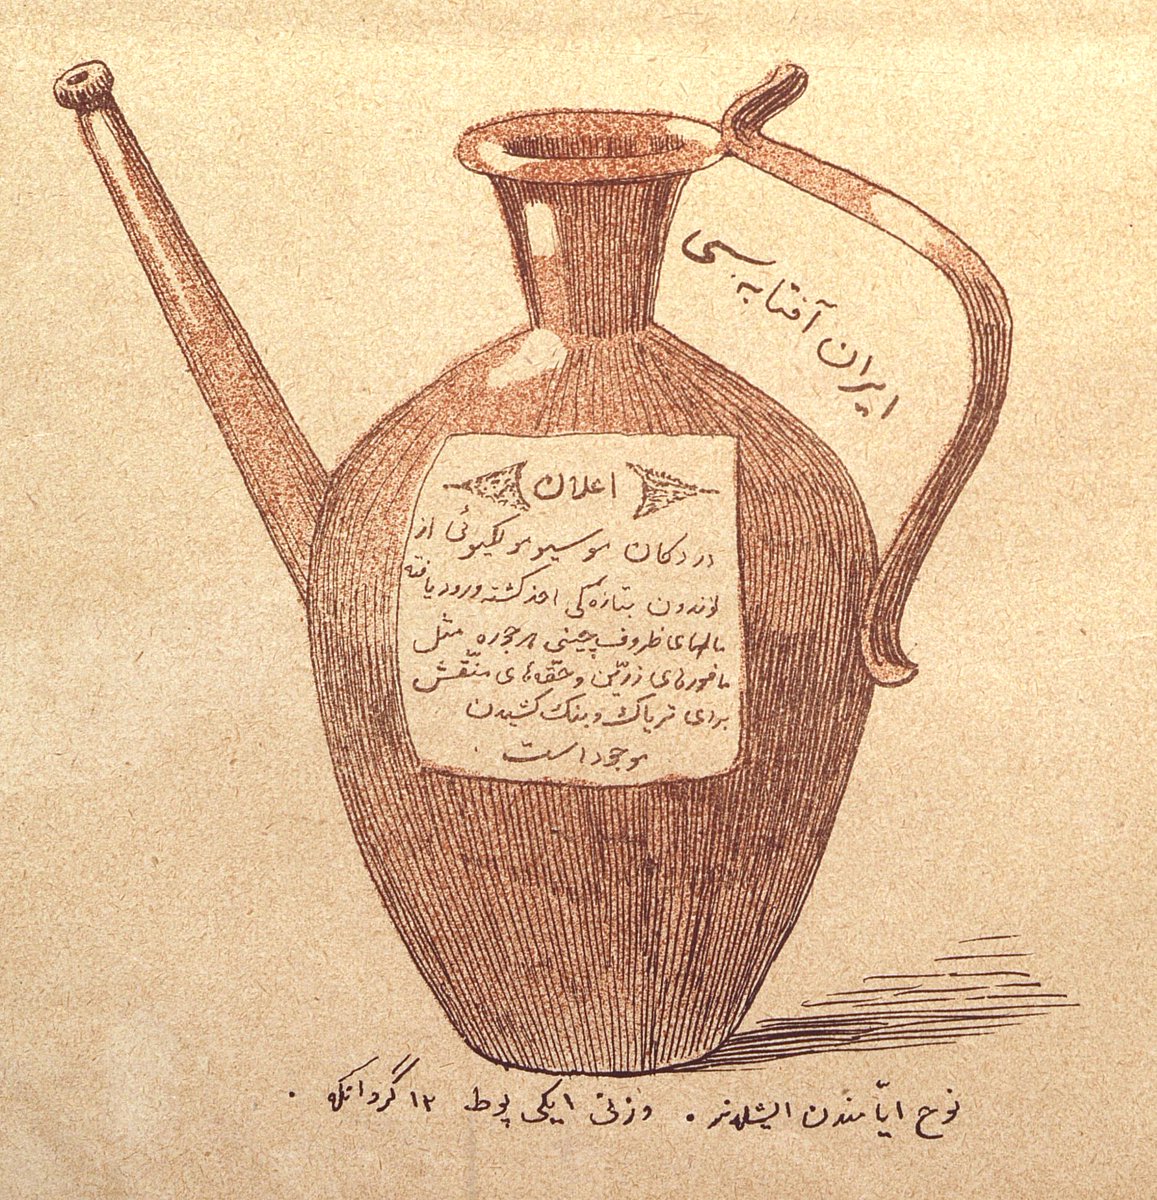 ایران آفتابه سی
اعلان
در دکان موسیو مولکیوئی از
لوندون بتازه‌گی اخذ گشته ورود یافته
مالهای ظروف چینی هرجوره مثل
مافورهای زرّین و حقّه‌های منقّش
برای تریاک و بنک کشیدن
موجود است
نوح ایّامندن ایشلدنر. وزنی ایکی پوط ۱۲ گروانکه.